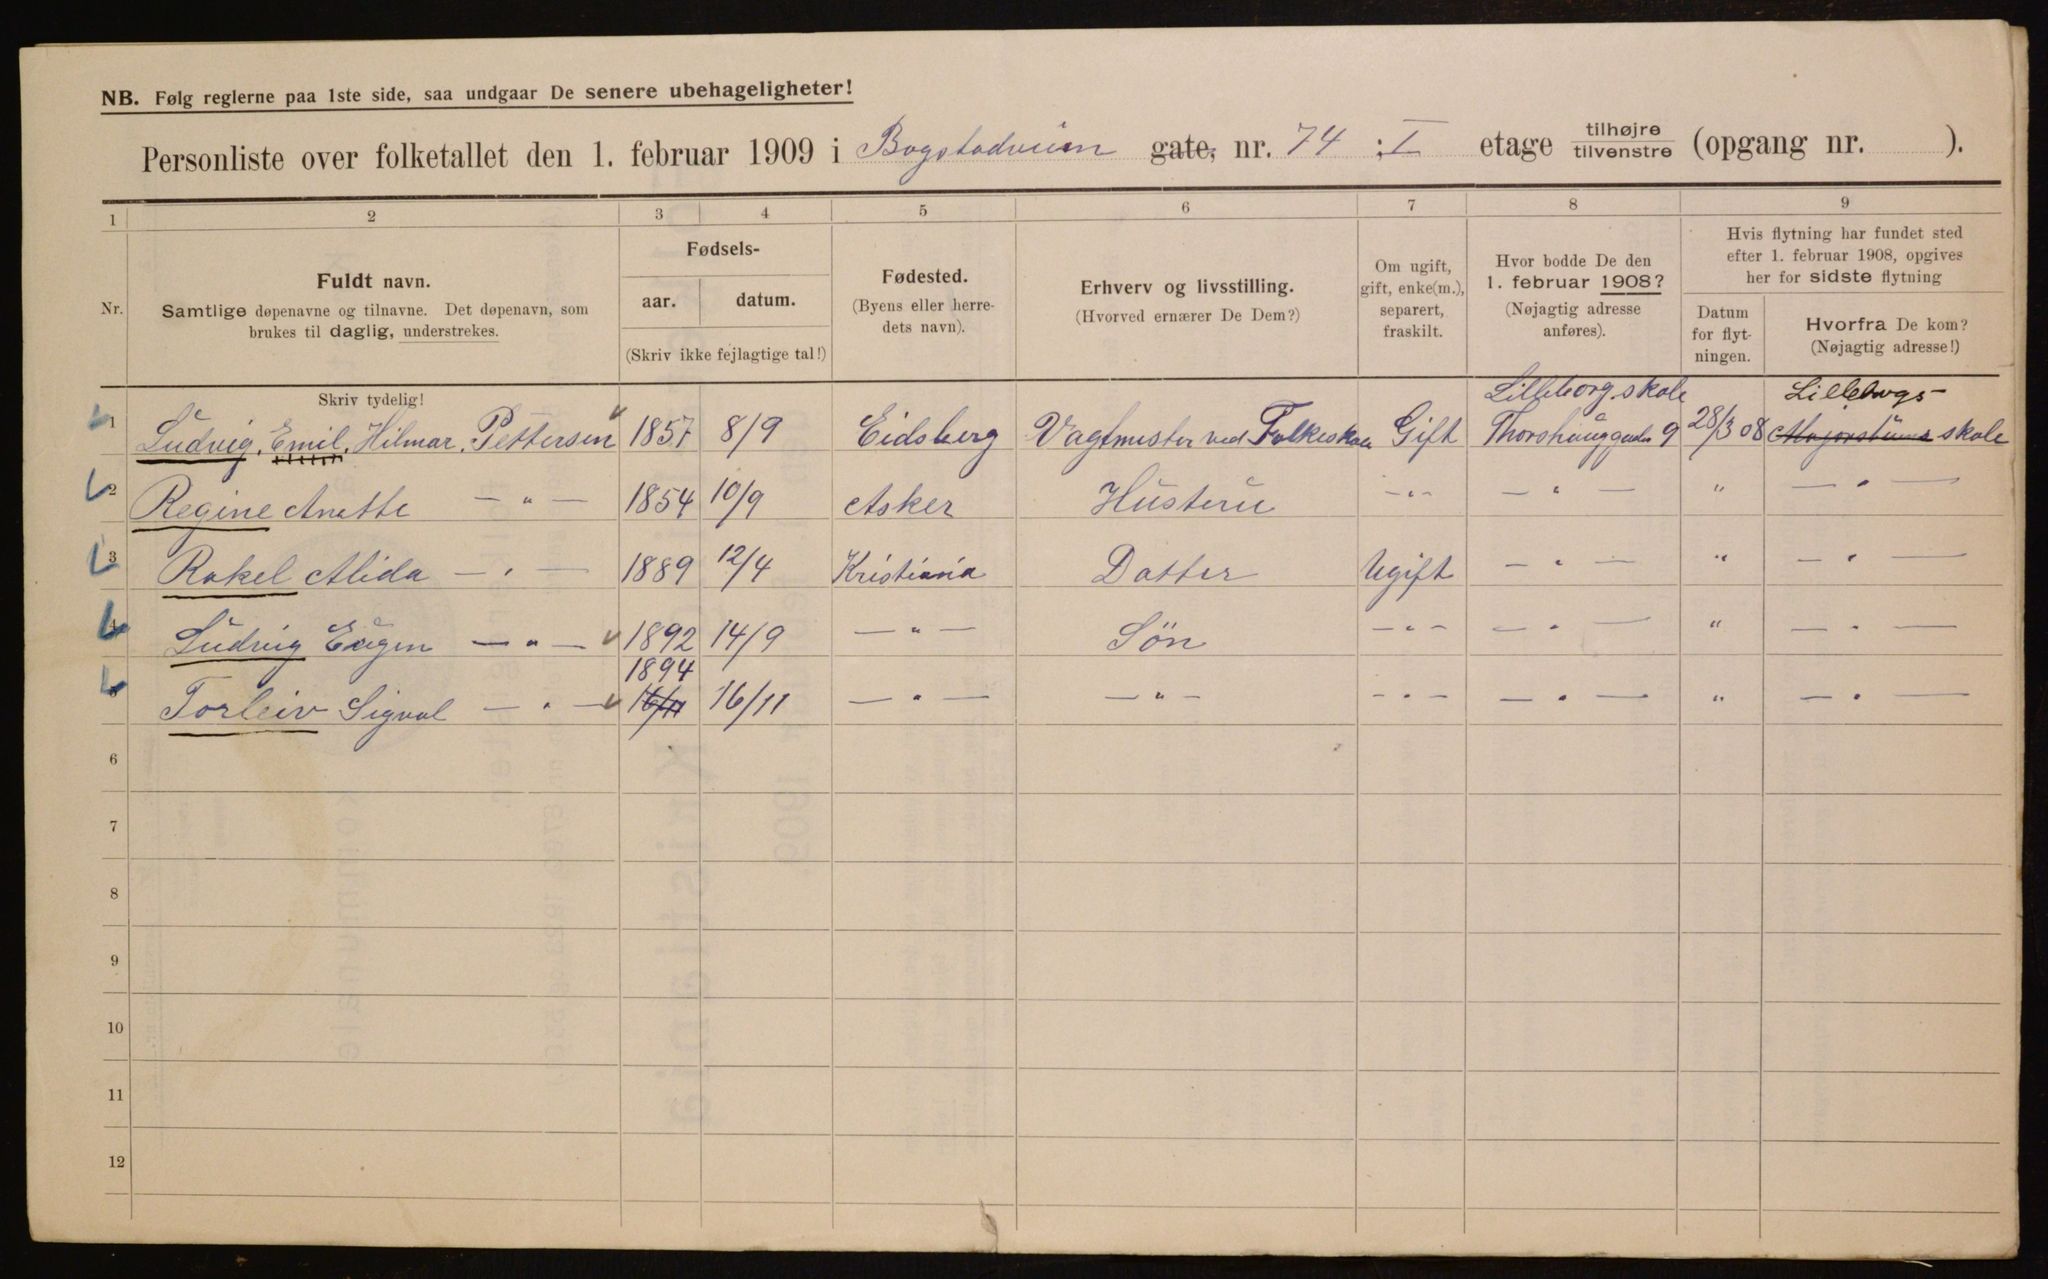 NB. Følg reglerne paa 1ste side, saa undgaar De senere ubehageligheter!
Personliste over folketallet den 1. februar 1909 i Bogstadveien gate, nr. 74 : I etage tilhøjre tilvenstre (opgang nr. ).
1 2 3 4 5 6 7 8 9
Nr.
Fuldt navn.
Samtlige døpenavne og tilnavne. Det døpenavn, som
brukes til daglig, understrekes.
Fødsels-
aar. datum.
(Skriv ikke fejlagtige tal!)
Fødested.
(Byens eller herre-
dets navn).
Erhverv og livsstilling.
(Hvorved ernærer De Dem?)
Om ugift,
gift, enke(m.),
separert,
fraskilt.
Hvor bodde De den
1. februar 1908?
(Nøjagtig adresse
anføres).
Hvis flytning har fundet sted
efter 1. februar 1908, opgives
her for sidste flytning
Datum
for flyt-
ningen.
Hvorfra De kom?
(Nøjagtig adresse!)
Skriv tydelig!
Lilleborg skole Lilleborgs-
1 Ludvig, Emil, Hilmar, Pettersen 1857 8/9 Eidsberg Vagtmester ved Folkeskole Gift Thorshauggaden 9 28/3 08 Majorstuens skole
2 Regine Anette — " — 1854 10/9 Asker Hustru - " - — " — " — " —
3 Rakel Alida — " — 1889 12/4 Kristiania Datter Ugift — " — " — " —
4 Ludvig Eugen — " — 1892 14/9 — " — Søn - " - — " — " — " —
1894
5 Torleiv Sigval — " — 16/11 16/11 — " — — " — - " - — " — " — " —
6
7
8
9
10
11
12